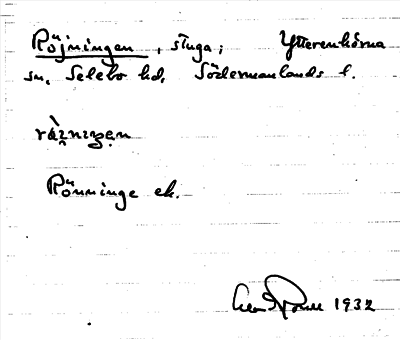 Röjningen, stuga; Ytterenhörna
sn, Selebo hd, Södermanlands l.
Rönninge ek.
1932